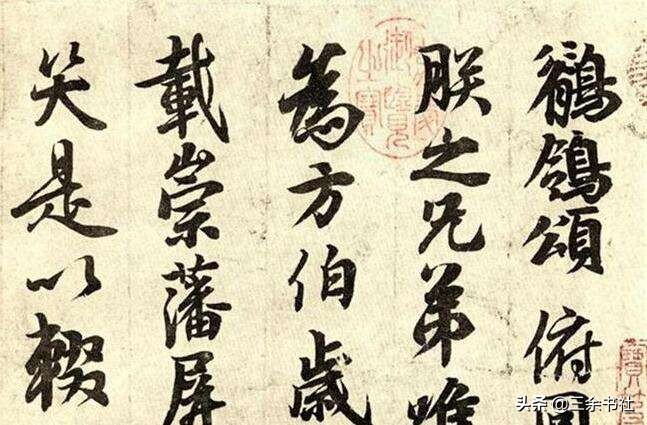 鶺鴒頌 俯同
朕之兄弟唯
為方伯歲
載崇藩屏
笑是以輟
御覽之寶
头条 @三余书社